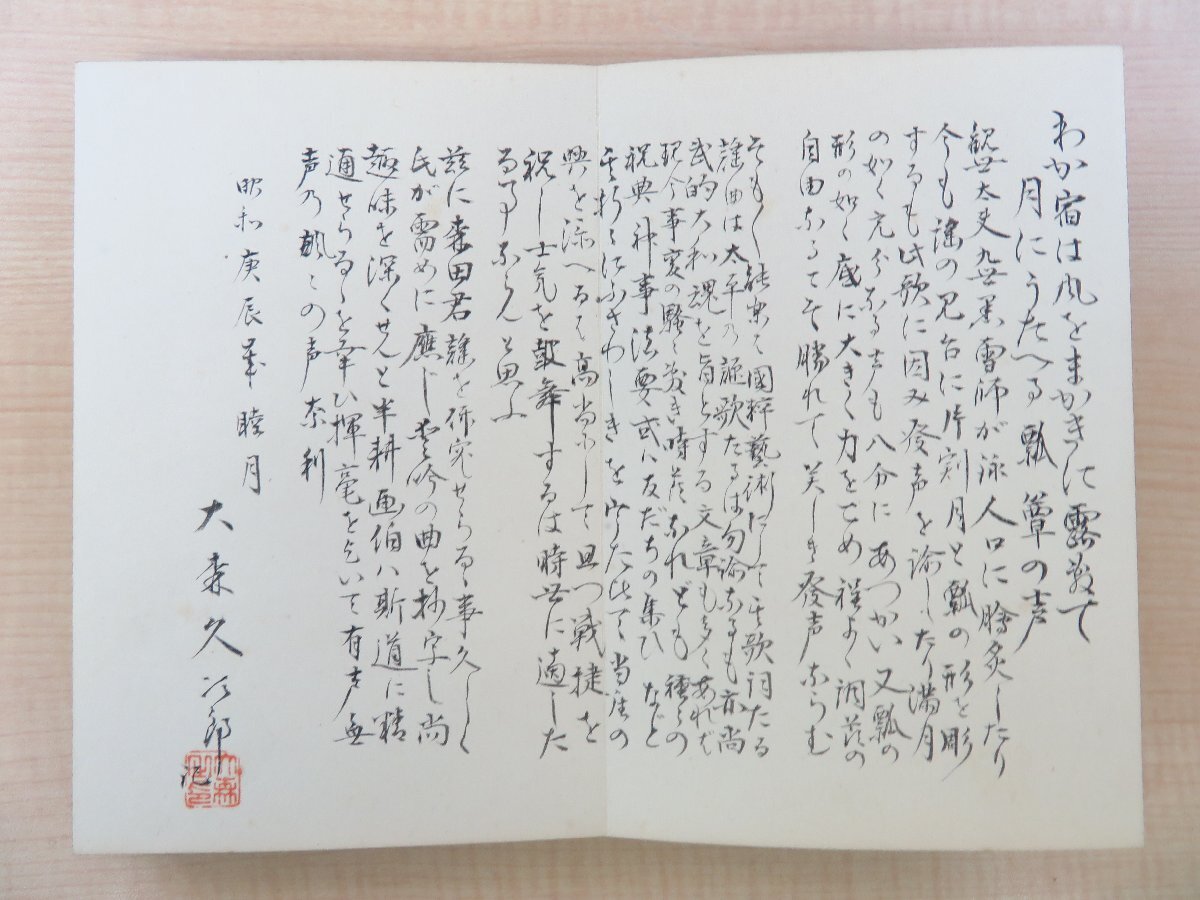 わか宿は風をまかきに露敷て
月にうたへる瓢簞の声
観世太夫九世黒雪師が詠人口に膾炙したり
今も謡の見台に片割月と瓢の形を彫
するも此歌に因み発声を諭したり満月
の如く充分なる声も八分にあつかい又瓢の
形の如く底に大きく力をこめ程よく調節の
自由なるこそ勝れて美しき発声ならむ
そも〱能楽は国粋藝術にして其歌詞たる
謡曲は太平の謳歌たるは勿論なるも亦尚
武的大和魂を旨とする文章も多くあれば
現今事変の騒々敷き時節なれども種々の
祝典神事法要或ハ友だちの集ひなど
其折々にふさわしきを うた 当座の
興を添へるは高尚にして且つ戦捷を
祝し士気を鼓舞するは時世に適した
るものならんと思ふ
茲に森田君謡を研究せらるゝ事久しく
氏が需めに應じ 吟の曲を抄字し尚
趣味を深くせんと半耕画伯ハ斯道に精
通せらるゝを幸ひ揮毫を乞いて有声無
声の瓢この声奈利
昭和庚辰年睦月
大森久次郎
記